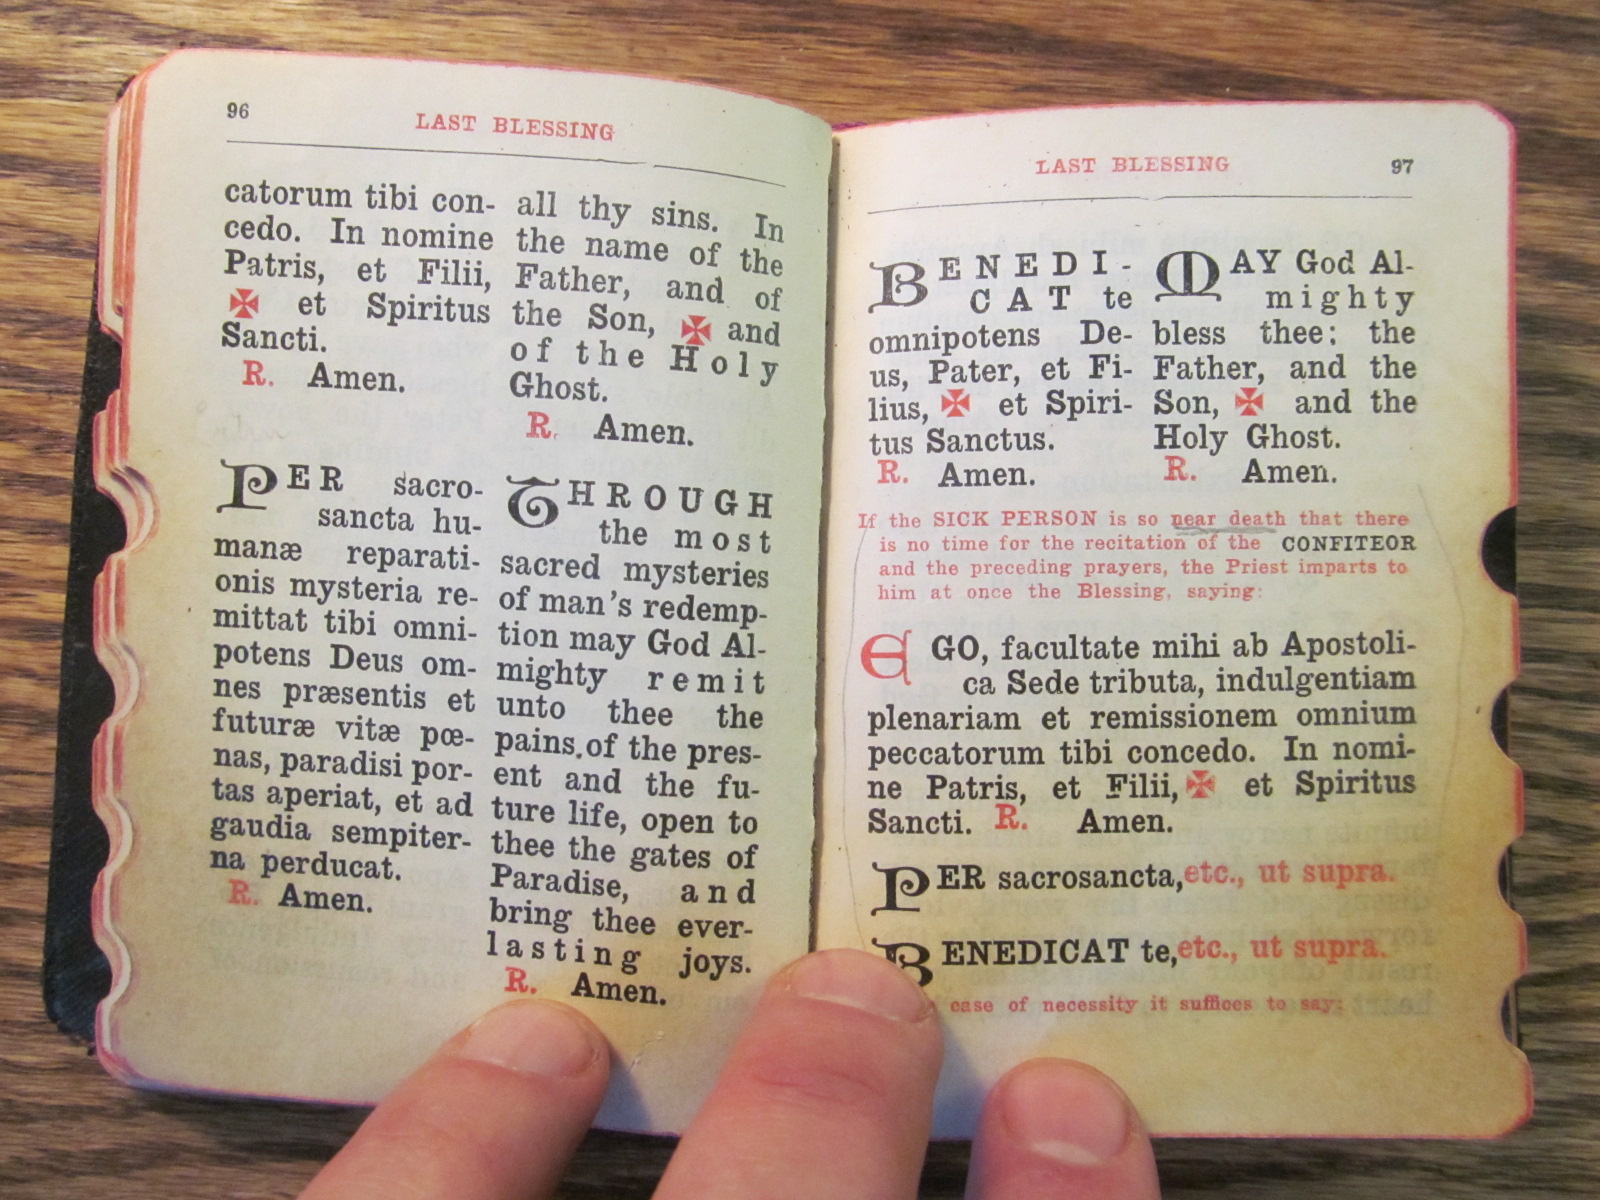 96
LAST BLESSING
catorum tibi con-
cedo. In nomine
Patris, et Filii,
✠ et Spiritus
Sancti.
R. Amen.
PER sacro-
sancta hu-
manæ reparati-
onis mysteria re-
mittat tibi omni-
potens Deus om-
nes præsentis et
futuræ vitæ pœ-
nas, paradisi por-
tas aperiat, et ad
gaudia sempiter-
na perducat.
R. Amen.
all thy sins. In
the name of the
Father, and of
the Son, ✠ and
of the Holy
Ghost.
R. Amen.
THROUGH
the most
sacred mysteries
of man's redemp-
tion may God Al-
mighty remit
unto thee the
pains of the pres-
ent and the fu-
ture life, open to
thee the gates of
Paradise, and
bring thee ever-
lasting joys.
R. Amen.
LAST BLESSING
97
BENEDI-
CAT te
omnipotens De-
us, Pater, et Fi-
lius, ✠ et Spiri-
tus Sanctus.
R. Amen.
MAY God Al-
mighty
bless thee: the
Father, and the
Son, ✠ and the
Holy Ghost.
R. Amen.
If the SICK PERSON is so near death that there
is no time for the recitation of the CONFITEOR
and the preceding prayers, the Priest imparts to
him at once the Blessing, saying:
EGO, facultate mihi ab Apostoli-
ca Sede tributa, indulgentiam
plenariam et remissionem omnium
peccatorum tibi concedo. In nomi-
ne Patris, et Filii, ✠ et Spiritus
Sancti. R. Amen.
PER sacrosancta, etc., ut supra.
BENEDICAT te, etc., ut supra.
case of necessity it suffices to say: